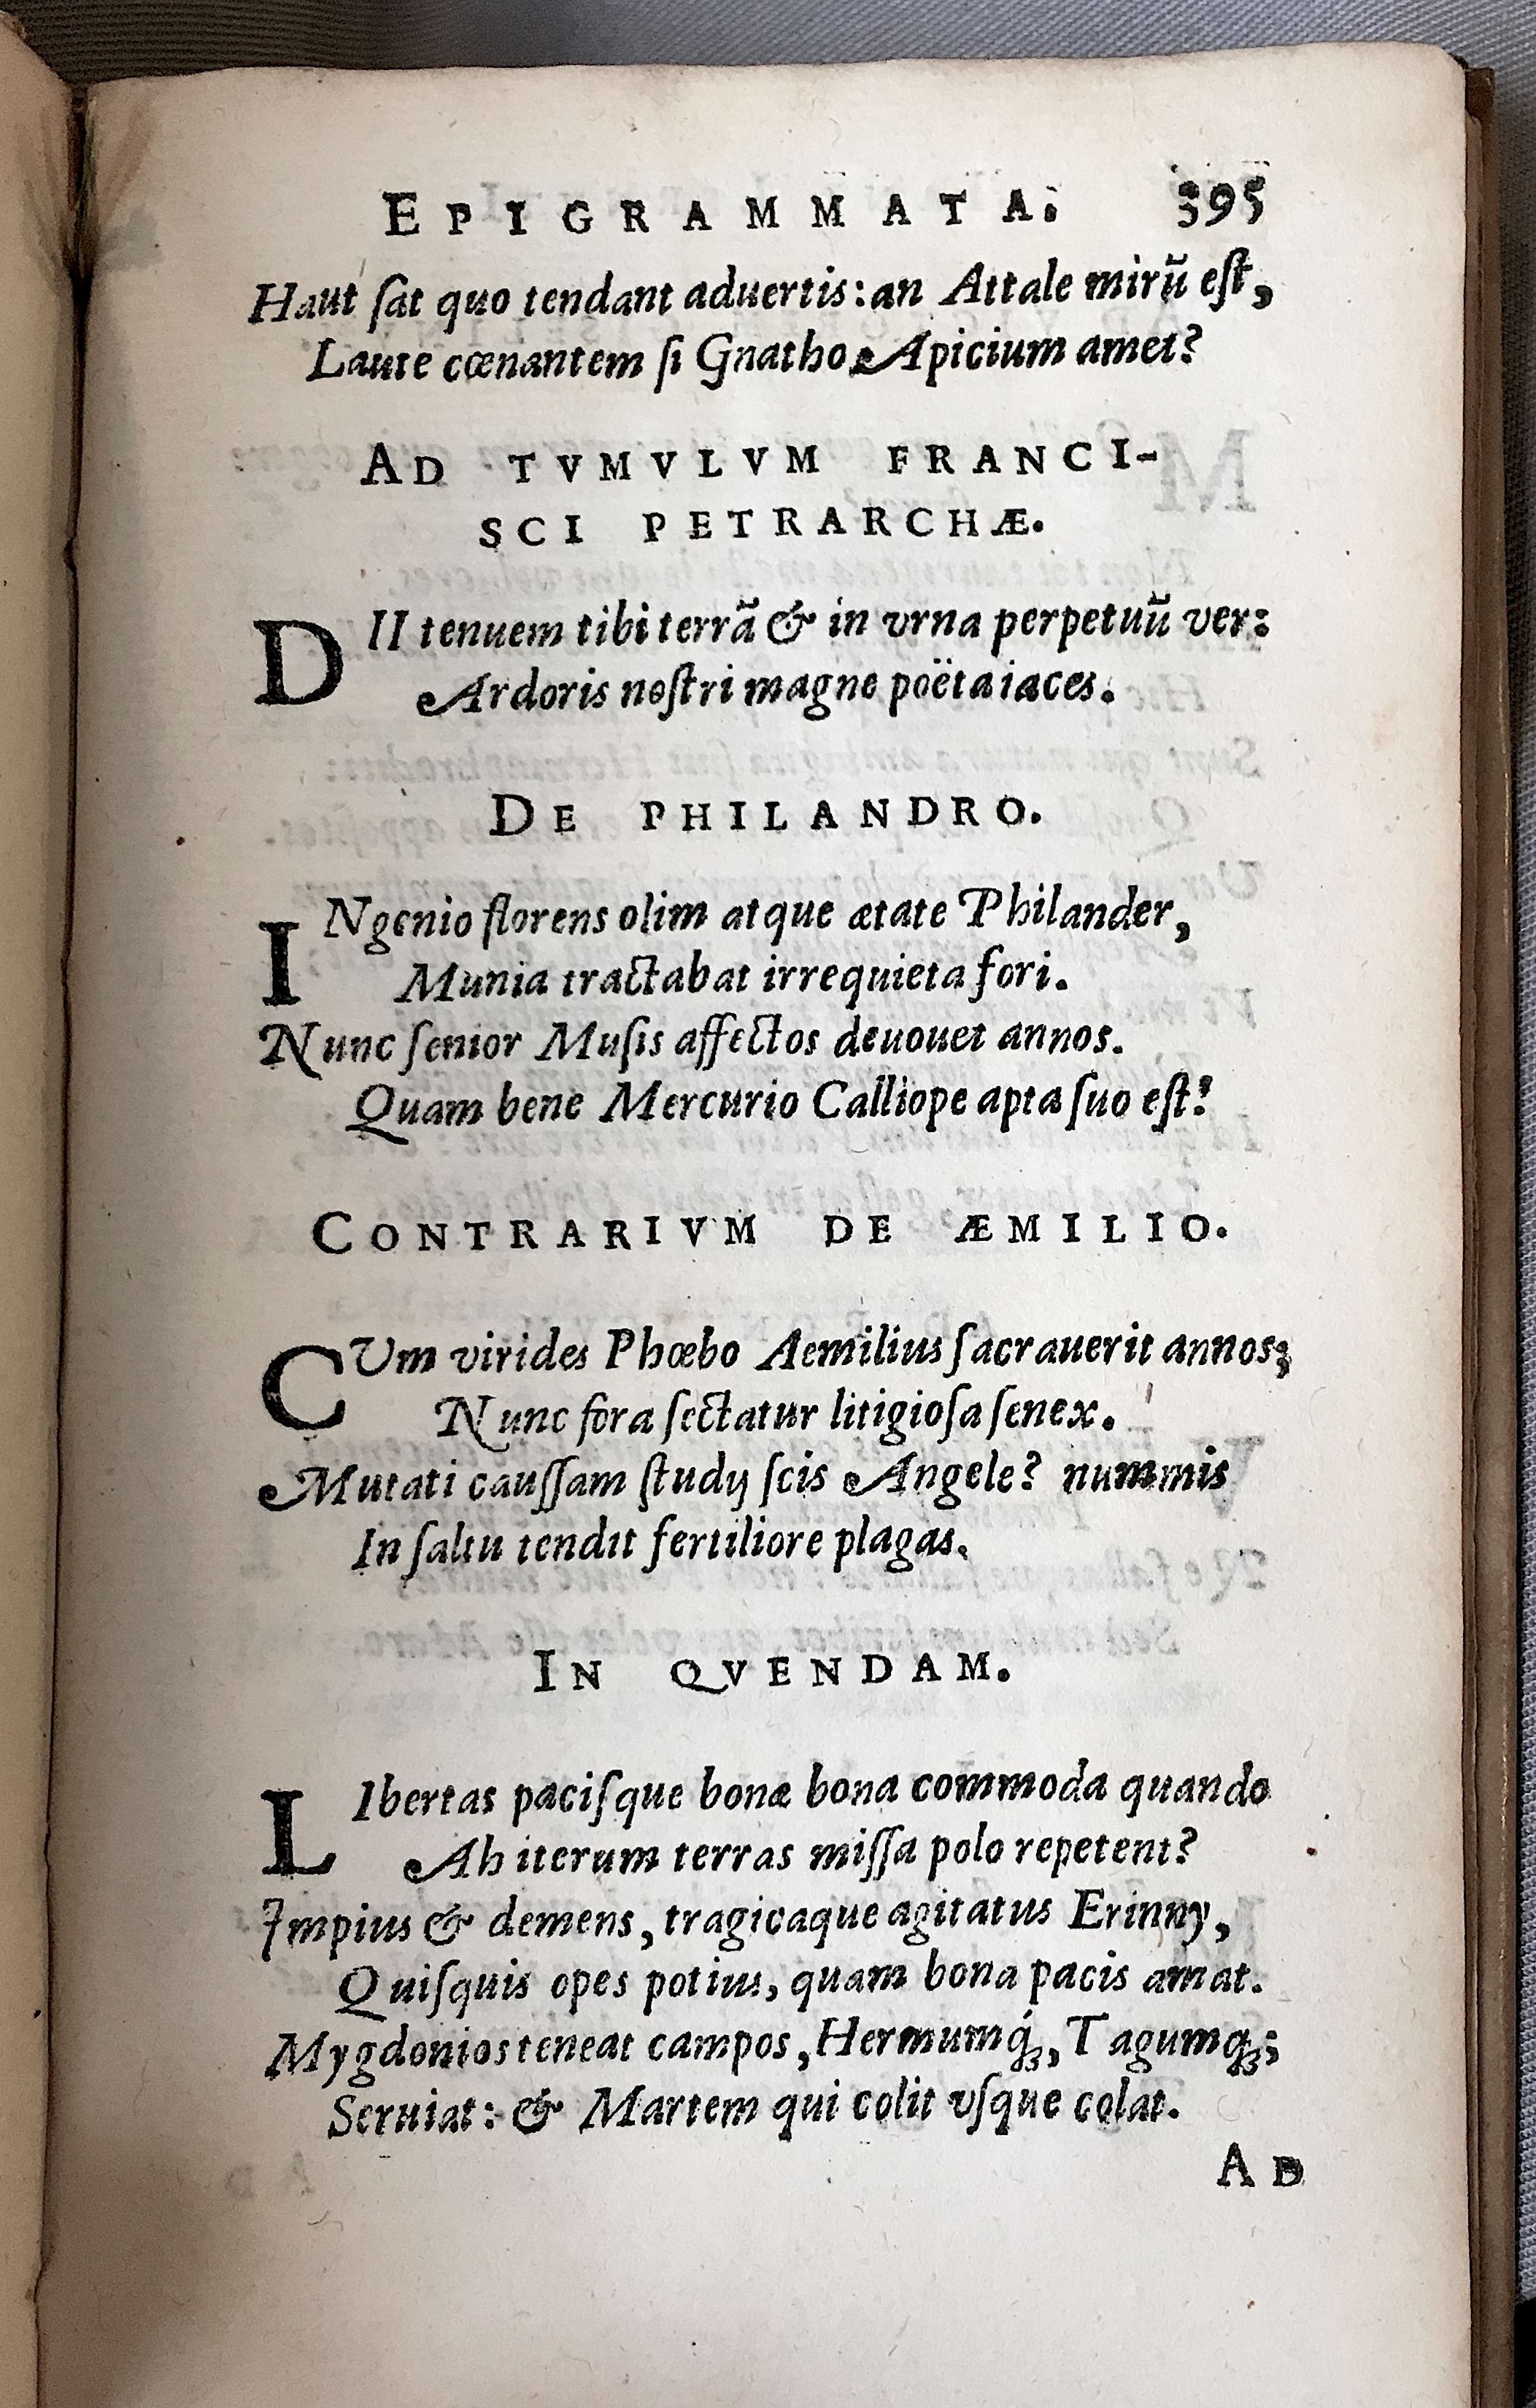 EPIGRAMMATA. 395
Haut ſat quo tendant aduertis: an Attale mirũ eſt,
Laute cœnantem ſi Gnatho Apicium amet?
AD TVMVLVM FRANCI-
SCI PETRARCHÆ.
DII tenuem tibi terrã & in vrna perpetuũ ver:
Ardoris noſtri magne poëta iaces.
DE PHILANDRO.
INgenio florens olim atque ætate Philander,
Munia tractabat irrequieta fori.
Nunc ſenior Muſis affectos deuouet annos.
Quam bene Mercurio Calliope apta ſuo eſt!
CONTRARIVM DE ÆMILIO.
CUm virides Phœbo Aemilius ſacrauerit annos;
Nunc fora ſectatur litigioſa ſenex.
Mutati cauſſam ſtudij ſcis Angele? nummis
In ſaltu tendit fertiliore plagas.
IN QVENDAM.
LIbertas paciſque bonæ bona commoda quando
Ah iterum terras miſſa polo repetent?
Impius & demens, tragicaque agitatus Erinny,
Quiſquis opes potius, quam bona pacis amat.
Mygdonios teneat campos, Hermumq́ꝫ, Tagumqꝫ;
Seruiat: & Martem qui colit vſque colat.
AD